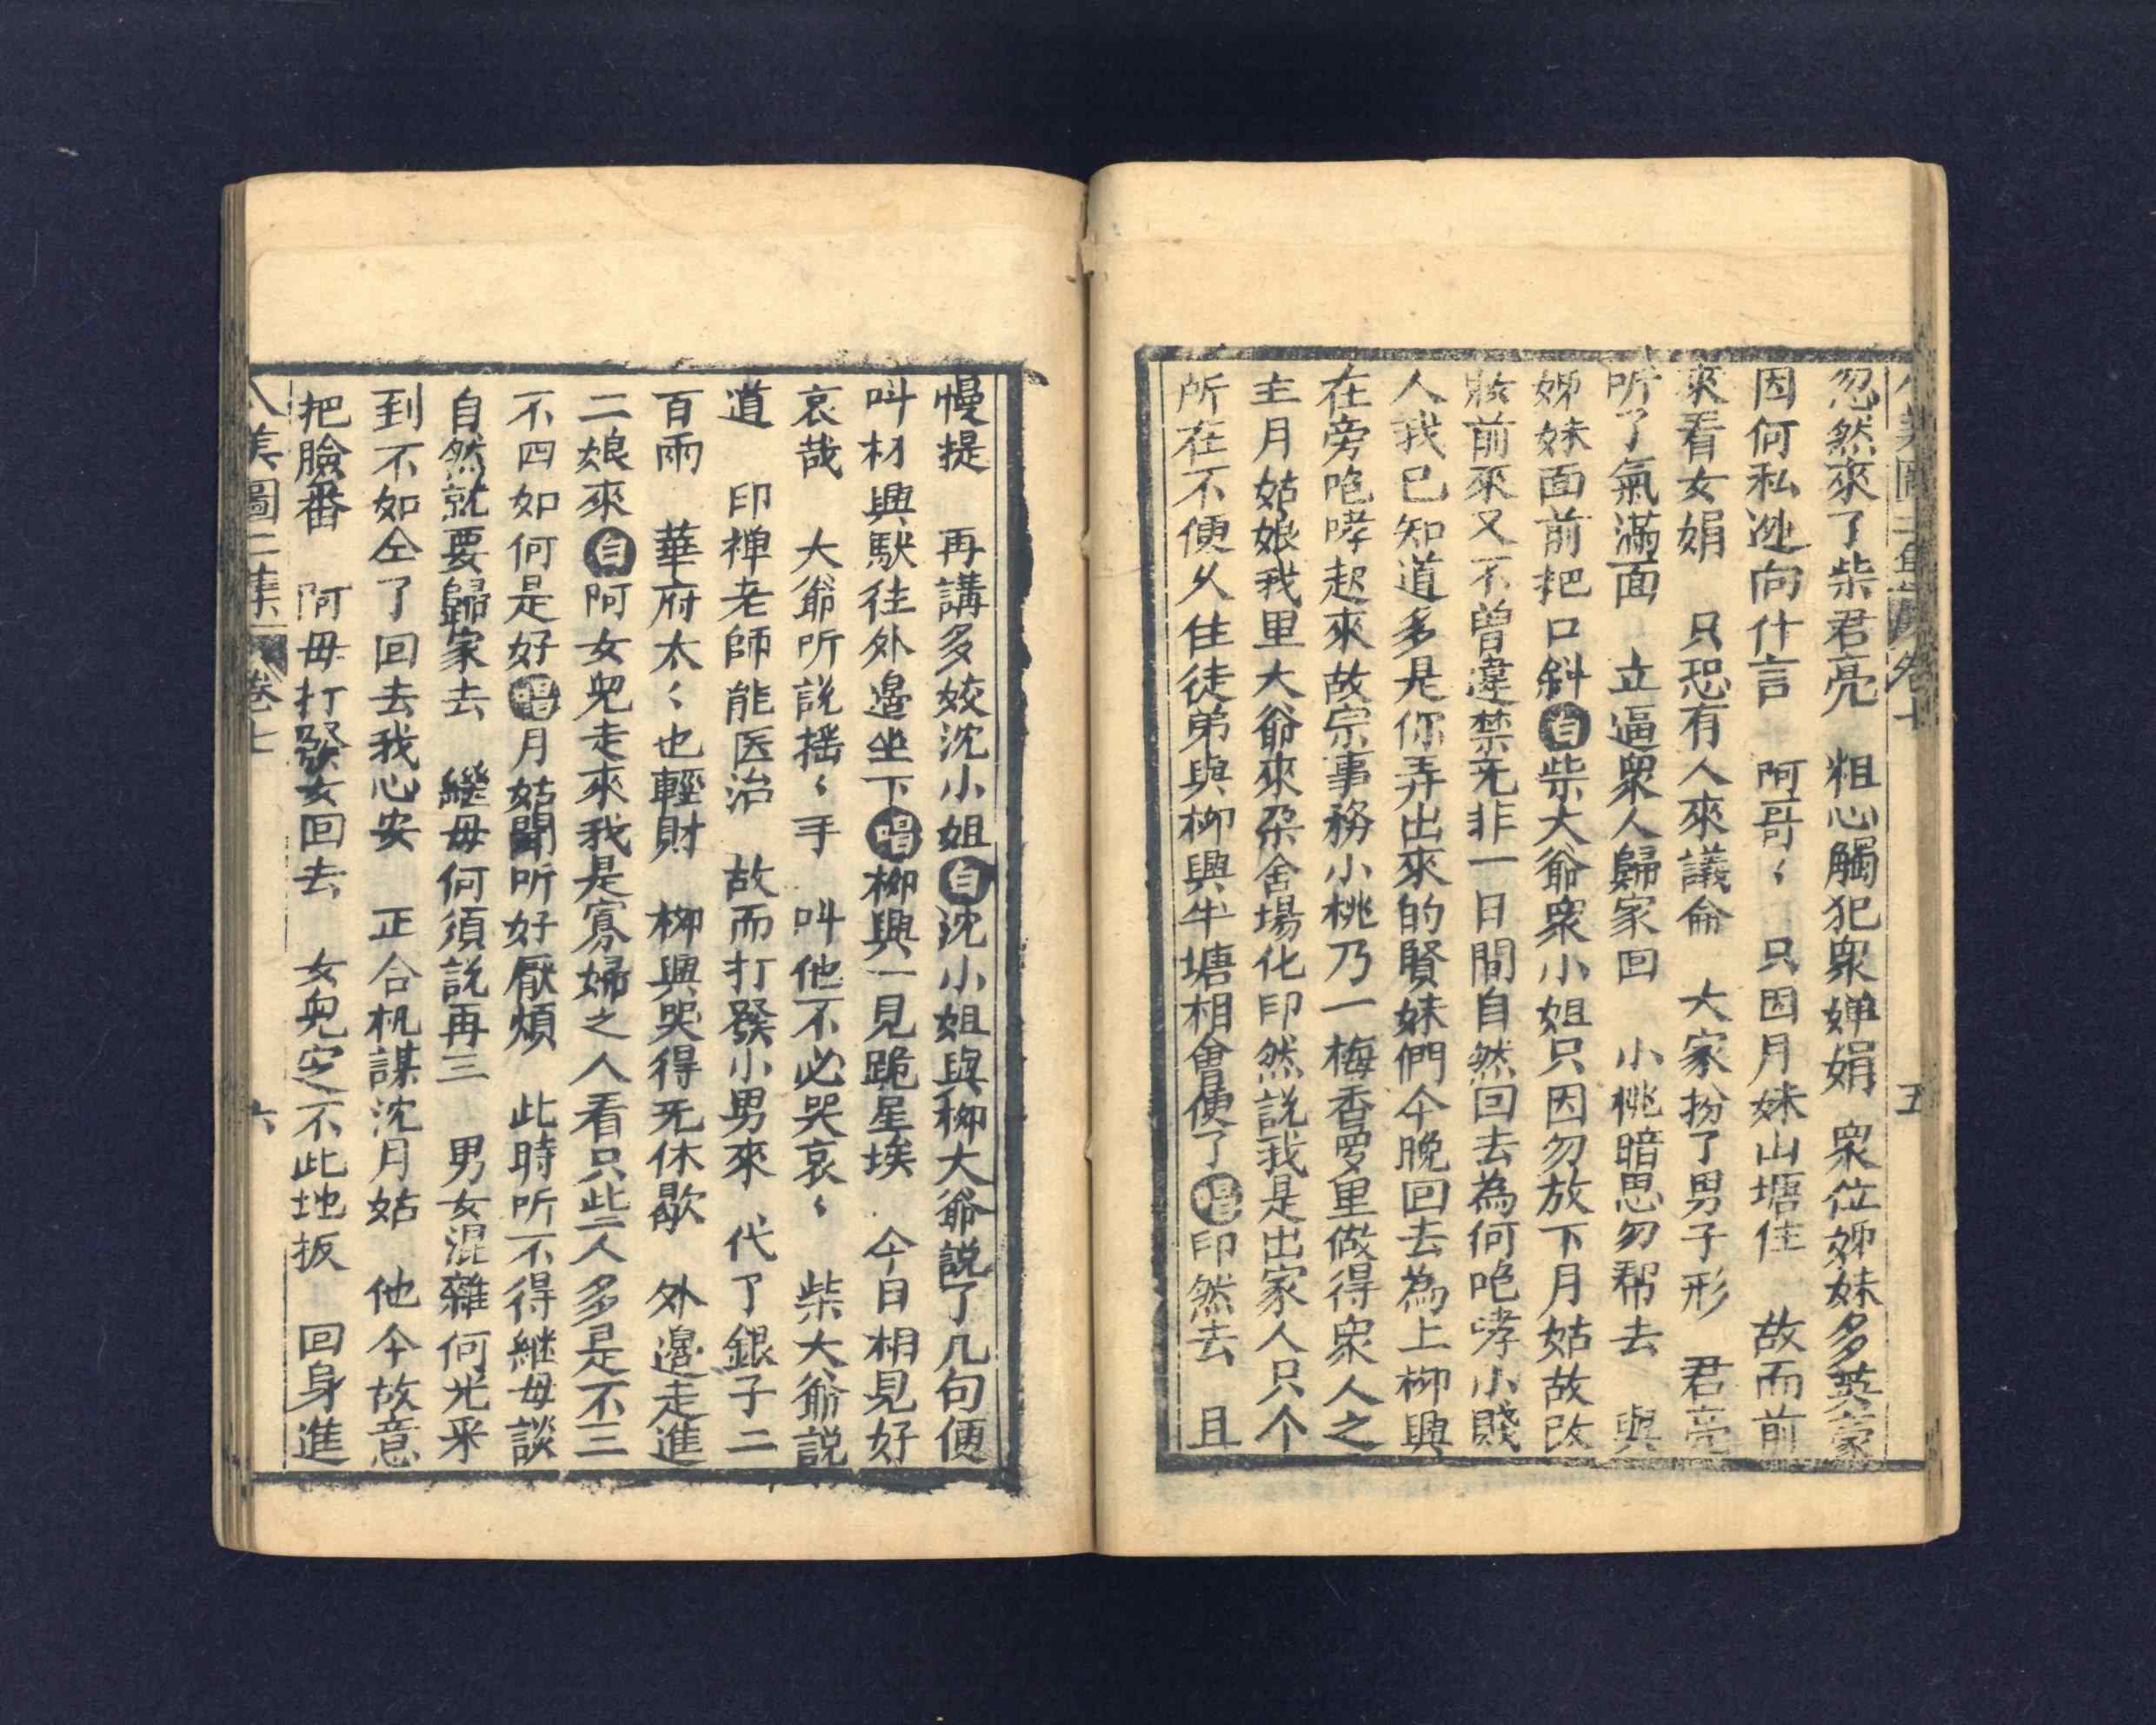 八美圖二集 卷七 五
忽然來了柴君亮 粗心觸犯衆嬋娟 衆位姊妹多英豪
因何私逃向什言 阿哥〻 只因月妹山塘住 故而前
來看女娟 只恐有人來議侖 大家扮了男子形 君亮
听了氣滿面 立逼衆人歸家回 小桃暗思勿帮去 與
姊妹面前把口斜白柴大爺衆小姐只因勿放下月姑故改
妝前來又不曾違禁无非一日間自然回去為何咆哮小賤
人我已知道多是你弄出來的賢妹們今晚回去為上柳興
在旁咆哮起來故宗事務小桃乃一梅香要里做得衆人之
主月姑娘我里大爺來朶舍場化印然説我是出家人只个
所在不便久住徒弟與柳興半塘相會便了唱印然去 且
慢提 再講多姣沈小姐白沈小姐與柳大爺説了几句便
叫材興馱往外邊坐下唱柳興一見跪星埃 今日相見好
哀哉 大爺所説摇〻手 叫他不必哭哀〻 柴大爺説
道 印禅老師能医治 故而打發小男來 代了銀子二
百兩 華府太〻也輕財 柳興哭得无休歇 外邊走進
二娘來白阿女兒走來我是寡婦之人看只些人多是不三
不四如何是好唱月姑聞听好厭煩 此時所不得継母談
自然就要歸家去 繼母何須説再三 男女混雜何光采
到不如仝了回去我心安 正合机謀沈月姑 他今故意
把臉番 阿毋打發女回去 女兒定不此地扳 回身進
八美圖二集 卷七 六